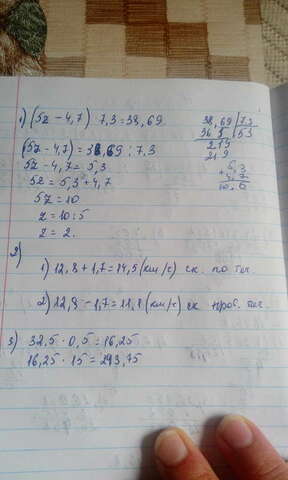 1) (5z - 4,7) 7,3 = 38,69
38,69 | 7,3
365 | 5,3
219
219
(5z - 4,7) = 38,69 : 7,3
5z - 4,7 = 5,3
5,3
+ 4,7
10,0
5z = 5,3 + 4,7
5z = 10
z = 10 : 5
z = 2.
2)
1) 12,8 + 1,7 = 14,5 (км/ч) ск. по теч.
2) 12,8 - 1,7 = 11,1 (км/ч) ск. прот. теч.
3) 32,5 · 0,5 = 16,25
16,25 · 15 = 293,75